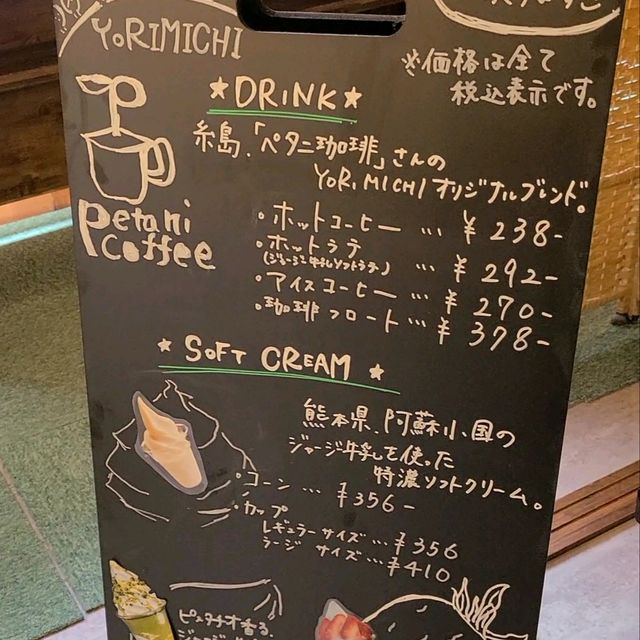 YoRiMICHI
※価格は全て
税込表示です。
★DRiNK★
糸島、「ペタニ珈琲」さんの
YoRiMICHIオリジナルブレンド。
Petani
coffee
・ホットコーヒー … ¥238-
・ホットラテ … ¥292-
(ジャージー牛乳ソフトラテ)
・アイスコーヒー … ¥270-
・珈琲フロート … ¥378-
★ SoFT CREAM ★
熊本県、阿蘇小国の
ジャージー牛乳を使った
特濃ソフトクリーム。
・コーン … ¥356-
・カップ
レギュラーサイズ … ¥356
ラージ サイズ … ¥410
ピスタチオ香る、